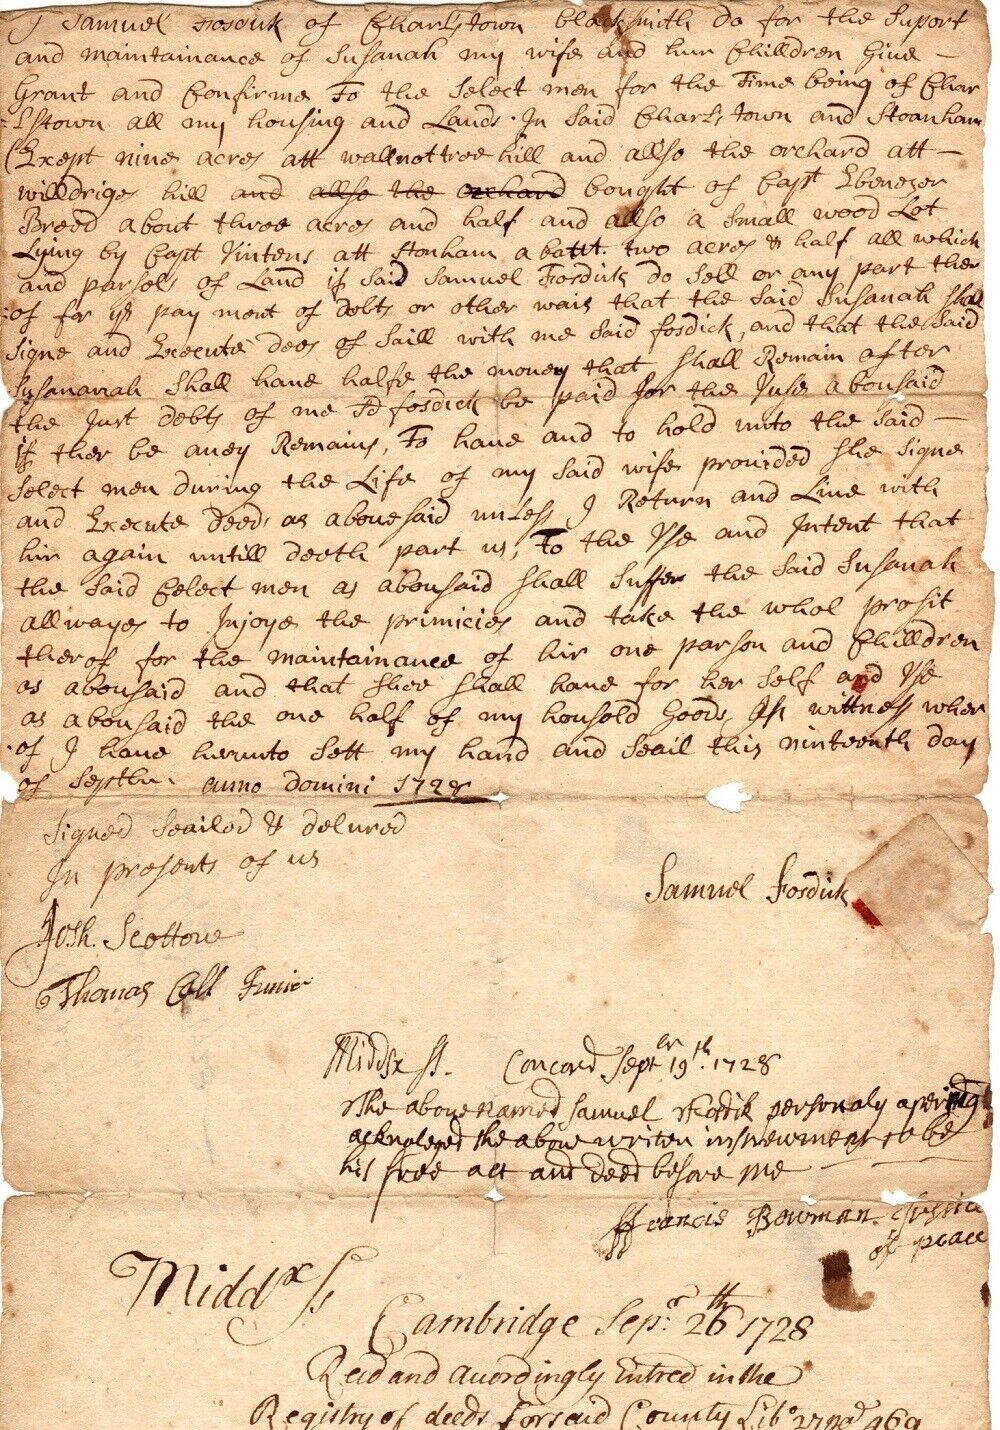 I Samuel Fosdick of Charlstown blacksmith do for the Suport
and maintainance of Susanah my wife and hur Chilldren Give –
Grant and Confirme To the Select men for the Time being of Char
=lstown all my housing and Lands. In Said Charlstown and Stoanham
(Exept nine acres att wallnottree hill and allso the orchard att –
willdriges hill and allso the orchard bought of Capt Ebenezer
Breed about three acres and half and allso a Small wood Lot
Lying by Capt Vintens att Stonham abatt. two acres & half all which
and parsels of Land if Said Samuel Fosdick do Sell or any part ther
=of for ye pay ment of debts or other wais that the Said Susanah Shall
Signe and Execute dees of Saill with me Said fosdick, and that the Said
Susananah Shall have halfe the money that Shall Remain after
the Just debts of me Sd fosdick be paid for the Vuse abousaid
if ther be aney Remains, To have and to hold unto the Said –
Select men during the Life of my Said wife provided She Signe
and Execute deeds as abovesaid unless I Return and Live with
hir again untill deeth part us, To the Vse and Intent that
the Said Celect men as abousaid Shall Suffer the Said Susanah
allwayes to Injoye the primicies and take the whol profit
therof for the maintainance of hir one parson and Chilldren
as abousaid and that Shee Shall have for her Self and Vse
as abousaid the one half of my housold Goods In wittness wher
of I have herunto Sett my hand and Seail this ninteenth day
of Septbr. anno domini 1728
Signed Seailed & delured
In presents of us
Samuel Fosdick
Josh. Scottow
Thomas Call Junior
Middsx ss. Concord Septbr 19th. 1728
The above named Samuel ffosdik personaly apering
acknoleged the above writen instrewment to be
his free act and deed before me
ffrancis Bowman. Justice
of peace
Middx ss
Cambridge Sepr. 26th 1728
Recd and accordingly Entred in the
Registry of deeds forsaid County Libo 27